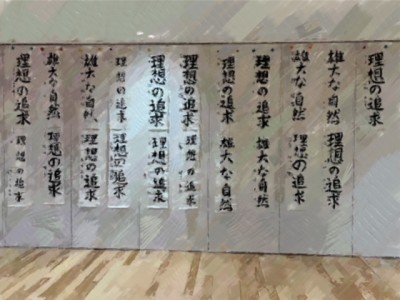 理想の追求
雄大な自然
雄大な自然
理想の追求
理想の追求
理想の追求
理想の追求
理想の追求
雄大な自然
雄大な自然
理想の追求
理想の追求
理想の追求
雄大な自然
雄大な自然
理想の追求
理想の追求
理想の追求
理想の追求
理想の追求
理想の追求